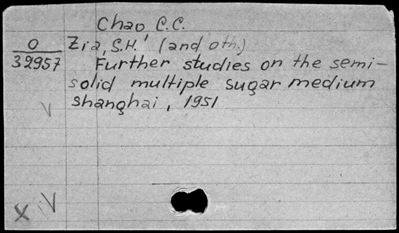 Chao C.C.
O Zia, S.H.' (and oth.)
32957 Further studies on the semi-
solid multiple sugar medium
V shanghai, 1951
X V